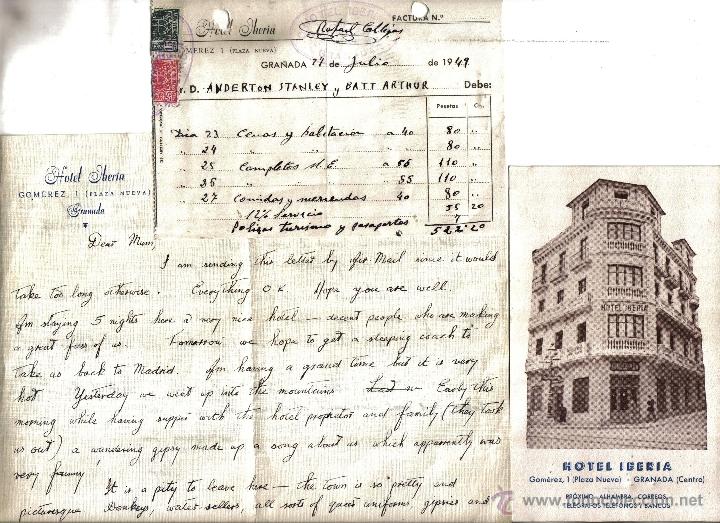 Hotel Iberia
GOMÉREZ, 1 (PLAZA NUEVA)
FACTURA N.º
Rafael Callejas
GRANADA 27 de Julio de 1949
D. ANDERTON STANLEY y BATT ARTHUR Debe:
Pesetas Cts.
Dia 23 Cenas y habitación a 40 80 "
" 24 " " " 80 "
" 25 Completos H.E a 55 110 "
" 26 " " 55 110 "
" 27 Comidas y meriendas 40 80 "
12% Servicio 55 20
Polizas turismo y pasaportes 7
522'20
Hotel Iberia
GOMÉREZ, 1 (PLAZA NUEVA)
Granada
Dear Mum,
I am sending this letter by Air Mail since it would
take too long otherwise. Everything O.K. Hope you are well.
Am staying 5 nights here a very nice hotel — decent people who are making
a great fuss of us. Tomorrow we hope to get a sleeping coach to
take us back to Madrid. Am having a grand time but it is very
hot. Yesterday we went up into the mountains. Early this
morning while having supper with the hotel proprietor and family (they took
us out) a wandering gipsy made up a song about us which apparently was
very funny!
It is a pity to leave here — the town is so pretty and
picturesque Donkeys, water sellers, all sorts of queer uniforms, gipsies and
HOTEL IBERIA
HOTEL IBERIA
Gomérez, 1 (Plaza Nueva) - GRANADA (Centro)
PRÓXIMO ALHAMBRA, CORREOS,
TELEGRAFOS TELEFONOS Y BANCOS
todocoleccion.net